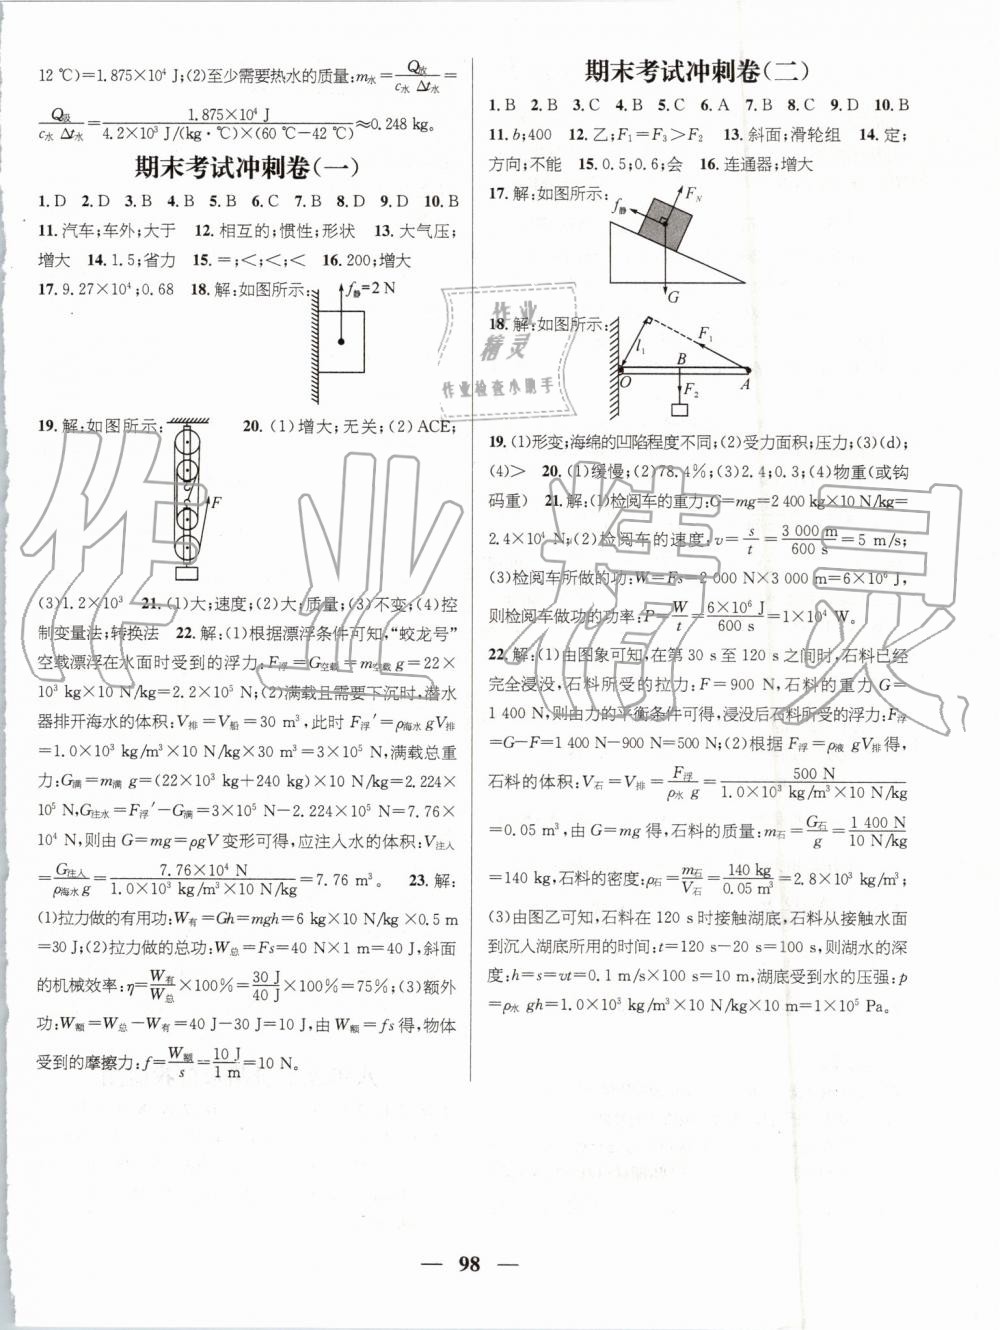 12 ℃)=1.875×10⁴ J;(2)至少需要热水的质量:m水=Q放/(c水 Δt水)=
Q吸/(c水 Δt水)=1.875×10⁴ J/(4.2×10³ J/(kg·℃)×(60 ℃−42 ℃))≈0.248 kg。
期末考试冲刺卷(一)
1.D 2.D 3.D 4.B 5.B 6.C 7.B 8.D 9.D 10.B
11.汽车;车外;大于 12.相互的;惯性;形状 13.大气压;
增大 14.1.5;省力 15.=;<;<;< 16.200;增大
17.9.27×10⁴;0.68 18.解:如图所示:
f静=2 N
19.解:如图所示: 20.(1)增大;无关;(2)ACE;
F
(3)1.2×10³ 21.(1)大;速度;(2)大;质量;(3)不变;(4)控
制变量法;转换法 22.解:(1)根据漂浮条件可知,“蛟龙号”
空载漂浮在水面时受到的浮力:F浮=G空载=m空载g=22×
10³ kg×10 N/kg=2.2×10⁵ N;(2)满载且需要下沉时,潜水
器排开海水的体积:V排=V船=30 m³,此时 F浮′=ρ海水gV排
=1.0×10³ kg/m³×10 N/kg×30 m³=3×10⁵ N,满载总重
力:G满=m满 g=(22×10³ kg+240 kg)×10 N/kg=2.224×
10⁵ N,G注水=F浮′−G满=3×10⁵ N−2.224×10⁵ N=7.76×
10⁴ N,则由 G=mg=ρgV 变形可得,应注入水的体积:V注入
=G注入/(ρ海水g)=7.76×10⁴ N/(1.0×10³ kg/m³×10 N/kg)=7.76 m³。 23.解:
(1)拉力做的有用功:W有=Gh=mgh=6 kg×10 N/kg×0.5 m
=30 J;(2)拉力做的总功:W总=Fs=40 N×1 m=40 J,斜面
的机械效率:η=W有/W总×100%=30 J/40 J×100%=75%;(3)额外
功:W额=W总−W有=40 J−30 J=10 J,由 W额=fs得,物体
受到的摩擦力:f=W额/s=10 J/1 m=10 N。
期末考试冲刺卷(二)
1.B 2.B 3.C 4.B 5.C 6.A 7.B 8.C 9.D 10.B
11.b;400 12.乙;F₁=F₃>F₂ 13.斜面;滑轮组 14.定;
方向;不能 15.0.5;0.6;会 16.连通器;增大
17.解:如图所示:
f静 F_N G
18.解:如图所示:
l₁ F₁ B O A F₂
19.(1)形变;海绵的凹陷程度不同;(2)受力面积;压力;(3)(d);
(4)> 20.(1)缓慢;(2)78.4%;(3)2.4;0.3;(4)物重(或钩
码重) 21.解:(1)检阅车的重力:G=mg=2 400 kg×10 N/kg=
2.4×10⁴ N;(2)检阅车的速度:v=s/t=3 000 m/600 s=5 m/s;
(3)检阅车所做的功:W=Fs=2 000 N×3 000 m=6×10⁶ J,
则检阅车做功的功率:P=W/t=6×10⁶ J/600 s=1×10⁴ W。
22.解:(1)由图象可知,在第 30 s 至 120 s之间时,石料已经
完全浸没,石料所受的拉力:F=900 N,石料的重力 G=
1 400 N,则由力的平衡条件可得,浸没后石料所受的浮力:F浮
=G−F=1 400 N−900 N=500 N;(2)根据 F浮=ρ液 gV排得,
石料的体积:V石=V排=F浮/(ρ水 g)=500 N/(1.0×10³ kg/m³×10 N/kg)
=0.05 m³,由 G=mg 得,石料的质量:m石=G石/g=1 400 N/10 N/kg
=140 kg,石料的密度:ρ石=m石/V石=140 kg/0.05 m³=2.8×10³ kg/m³;
(3)由图乙可知,石料在 120 s时接触湖底,石料从接触水面
到沉入湖底所用的时间:t=120 s−20 s=100 s,则湖水的深
度:h=s=vt=0.1 m/s×100 s=10 m,湖底受到水的压强:p
=ρ水 gh=1.0×10³ kg/m³×10 N/kg×10 m=1×10⁵ Pa。
作业
精灵
作业检查小助手
作业精灵
— 98 —